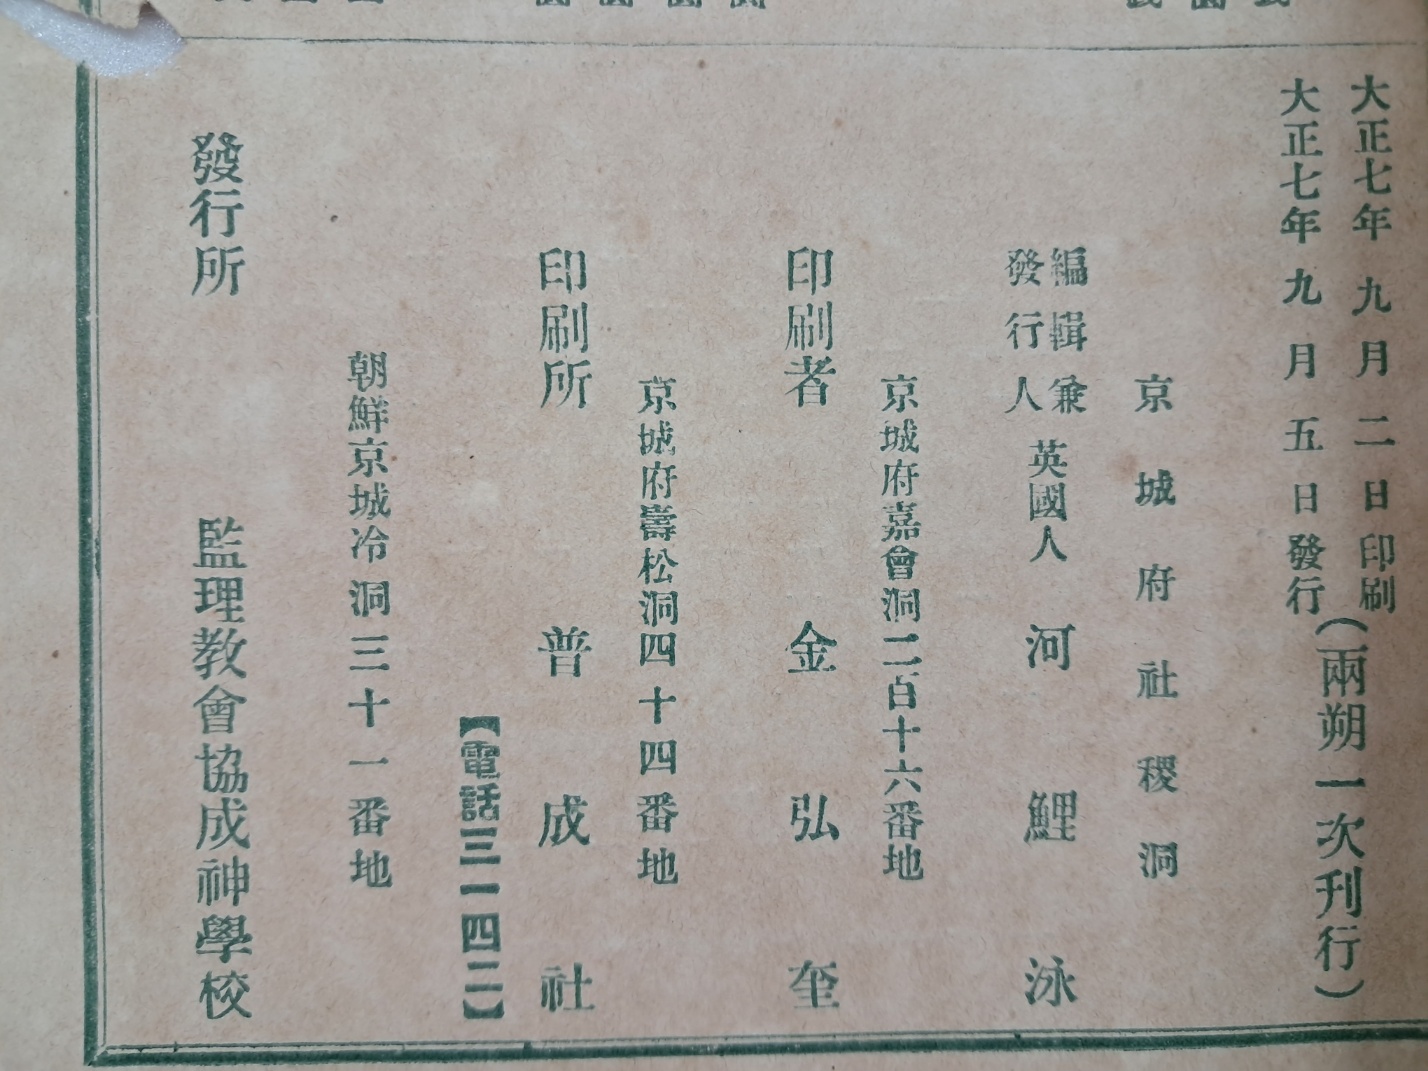 大正七年九月二日印刷
大正七年九月五日發行
(兩朔一次刊行)
京城府社稷洞
編輯兼
發行人
英國人 河鯉泳
京城府嘉會洞二百十六番地
印刷者 金弘奎
京城府壽松洞四十四番地
印刷所 普成社
【電話三一四二】
朝鮮京城冷洞三十一番地
發行所 監理教會協成神學校